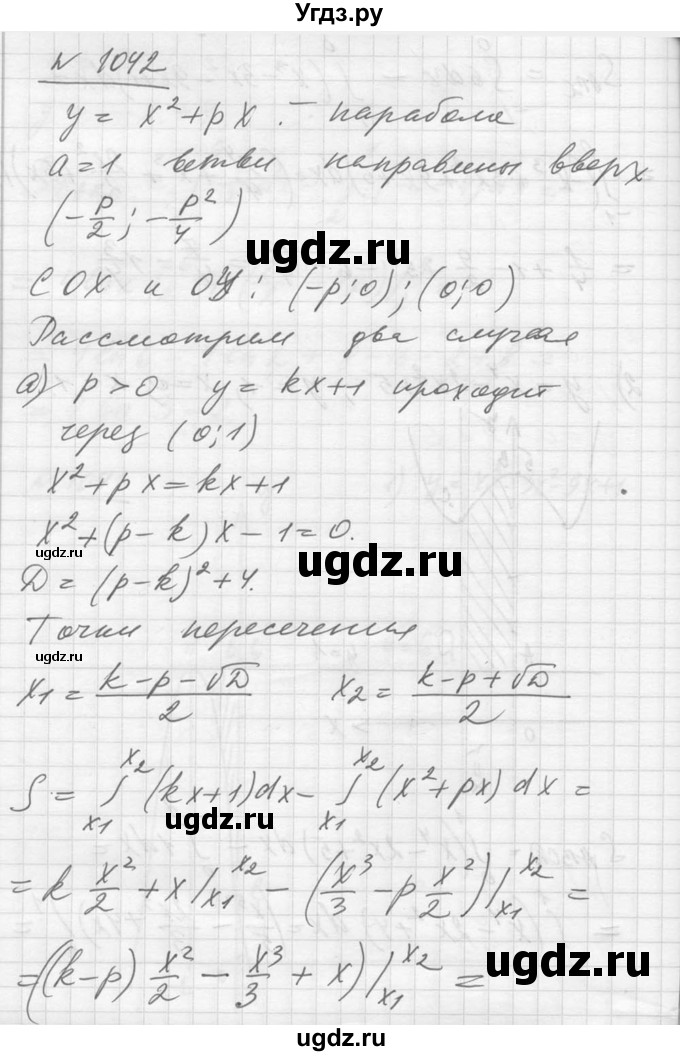 Угдз.ру
N 1042
y = x² + px. – парабола
a = 1 ветви направлены вверх
(-p/2; -p²/4)
ugdz.ru
С OX и OY: (-p; 0); (0; 0)
Рассмотрим два случая
а) p > 0 y = kx+1 проходит
через (0; 1)
x² + px = kx + 1
x² + (p - k)x - 1 = 0.
ugdz.ru
ugdz.ru
D = (p-k)² + 4.
Точки пересечения
ugdz.ru
x₁ = (k - p - √D)/2 x₂ = (k - p + √D)/2
S = ∫_{x₁}^{x₂} (kx+1)dx - ∫_{x₁}^{x₂} (x² + px) dx =
ugdz.ru
= k x²/2 + x /_{x₁}^{x₂} - (x³/3 - p x²/2) /_{x₁}^{x₂} =
= ((k-p) x²/2 - x³/3 + x) /_{x₁}^{x₂} =
ugdz.ru
ugdz.ru
ugdz.ru